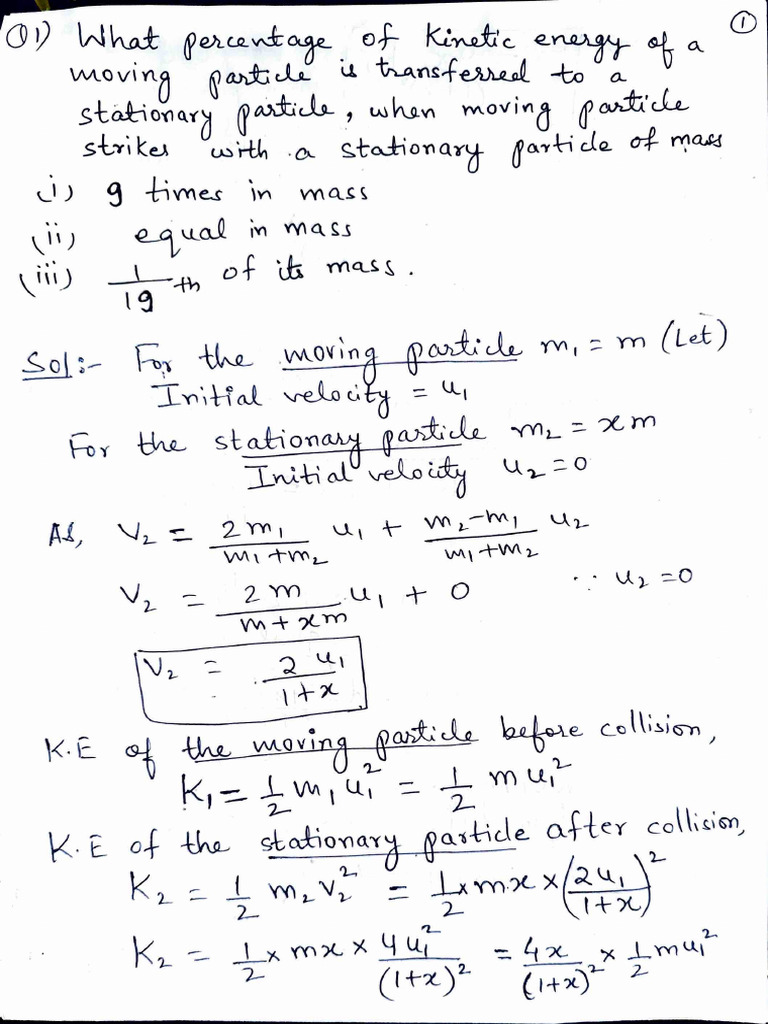 ①
Q1) What percentage of Kinetic energy of a
moving particle is transferred to a
stationary particle, when moving particle
strikes with a stationary particle of mass
(i) 9 times in mass
(ii) equal in mass
(iii) 1/19 th of its mass.
Sol:- For the moving particle m₁ = m (Let)
Initial velocity = u₁
For the stationary particle m₂ = xm
Initial velocity u₂ = 0
As, V₂ = 2m₁/(m₁+m₂) u₁ + (m₂-m₁)/(m₁+m₂) u₂
V₂ = 2m/(m+xm) u₁ + 0 ∵ u₂ = 0
V₂ = 2u₁/(1+x)
K.E of the moving particle before collision,
K₁ = 1/2 m₁u₁² = 1/2 mu₁²
K.E of the stationary particle after collision,
K₂ = 1/2 m₂V₂² = 1/2 × mx × (2u₁/(1+x))²
K₂ = 1/2 × mx × 4u₁²/(1+x)² = 4x/(1+x)² × 1/2 mu₁²